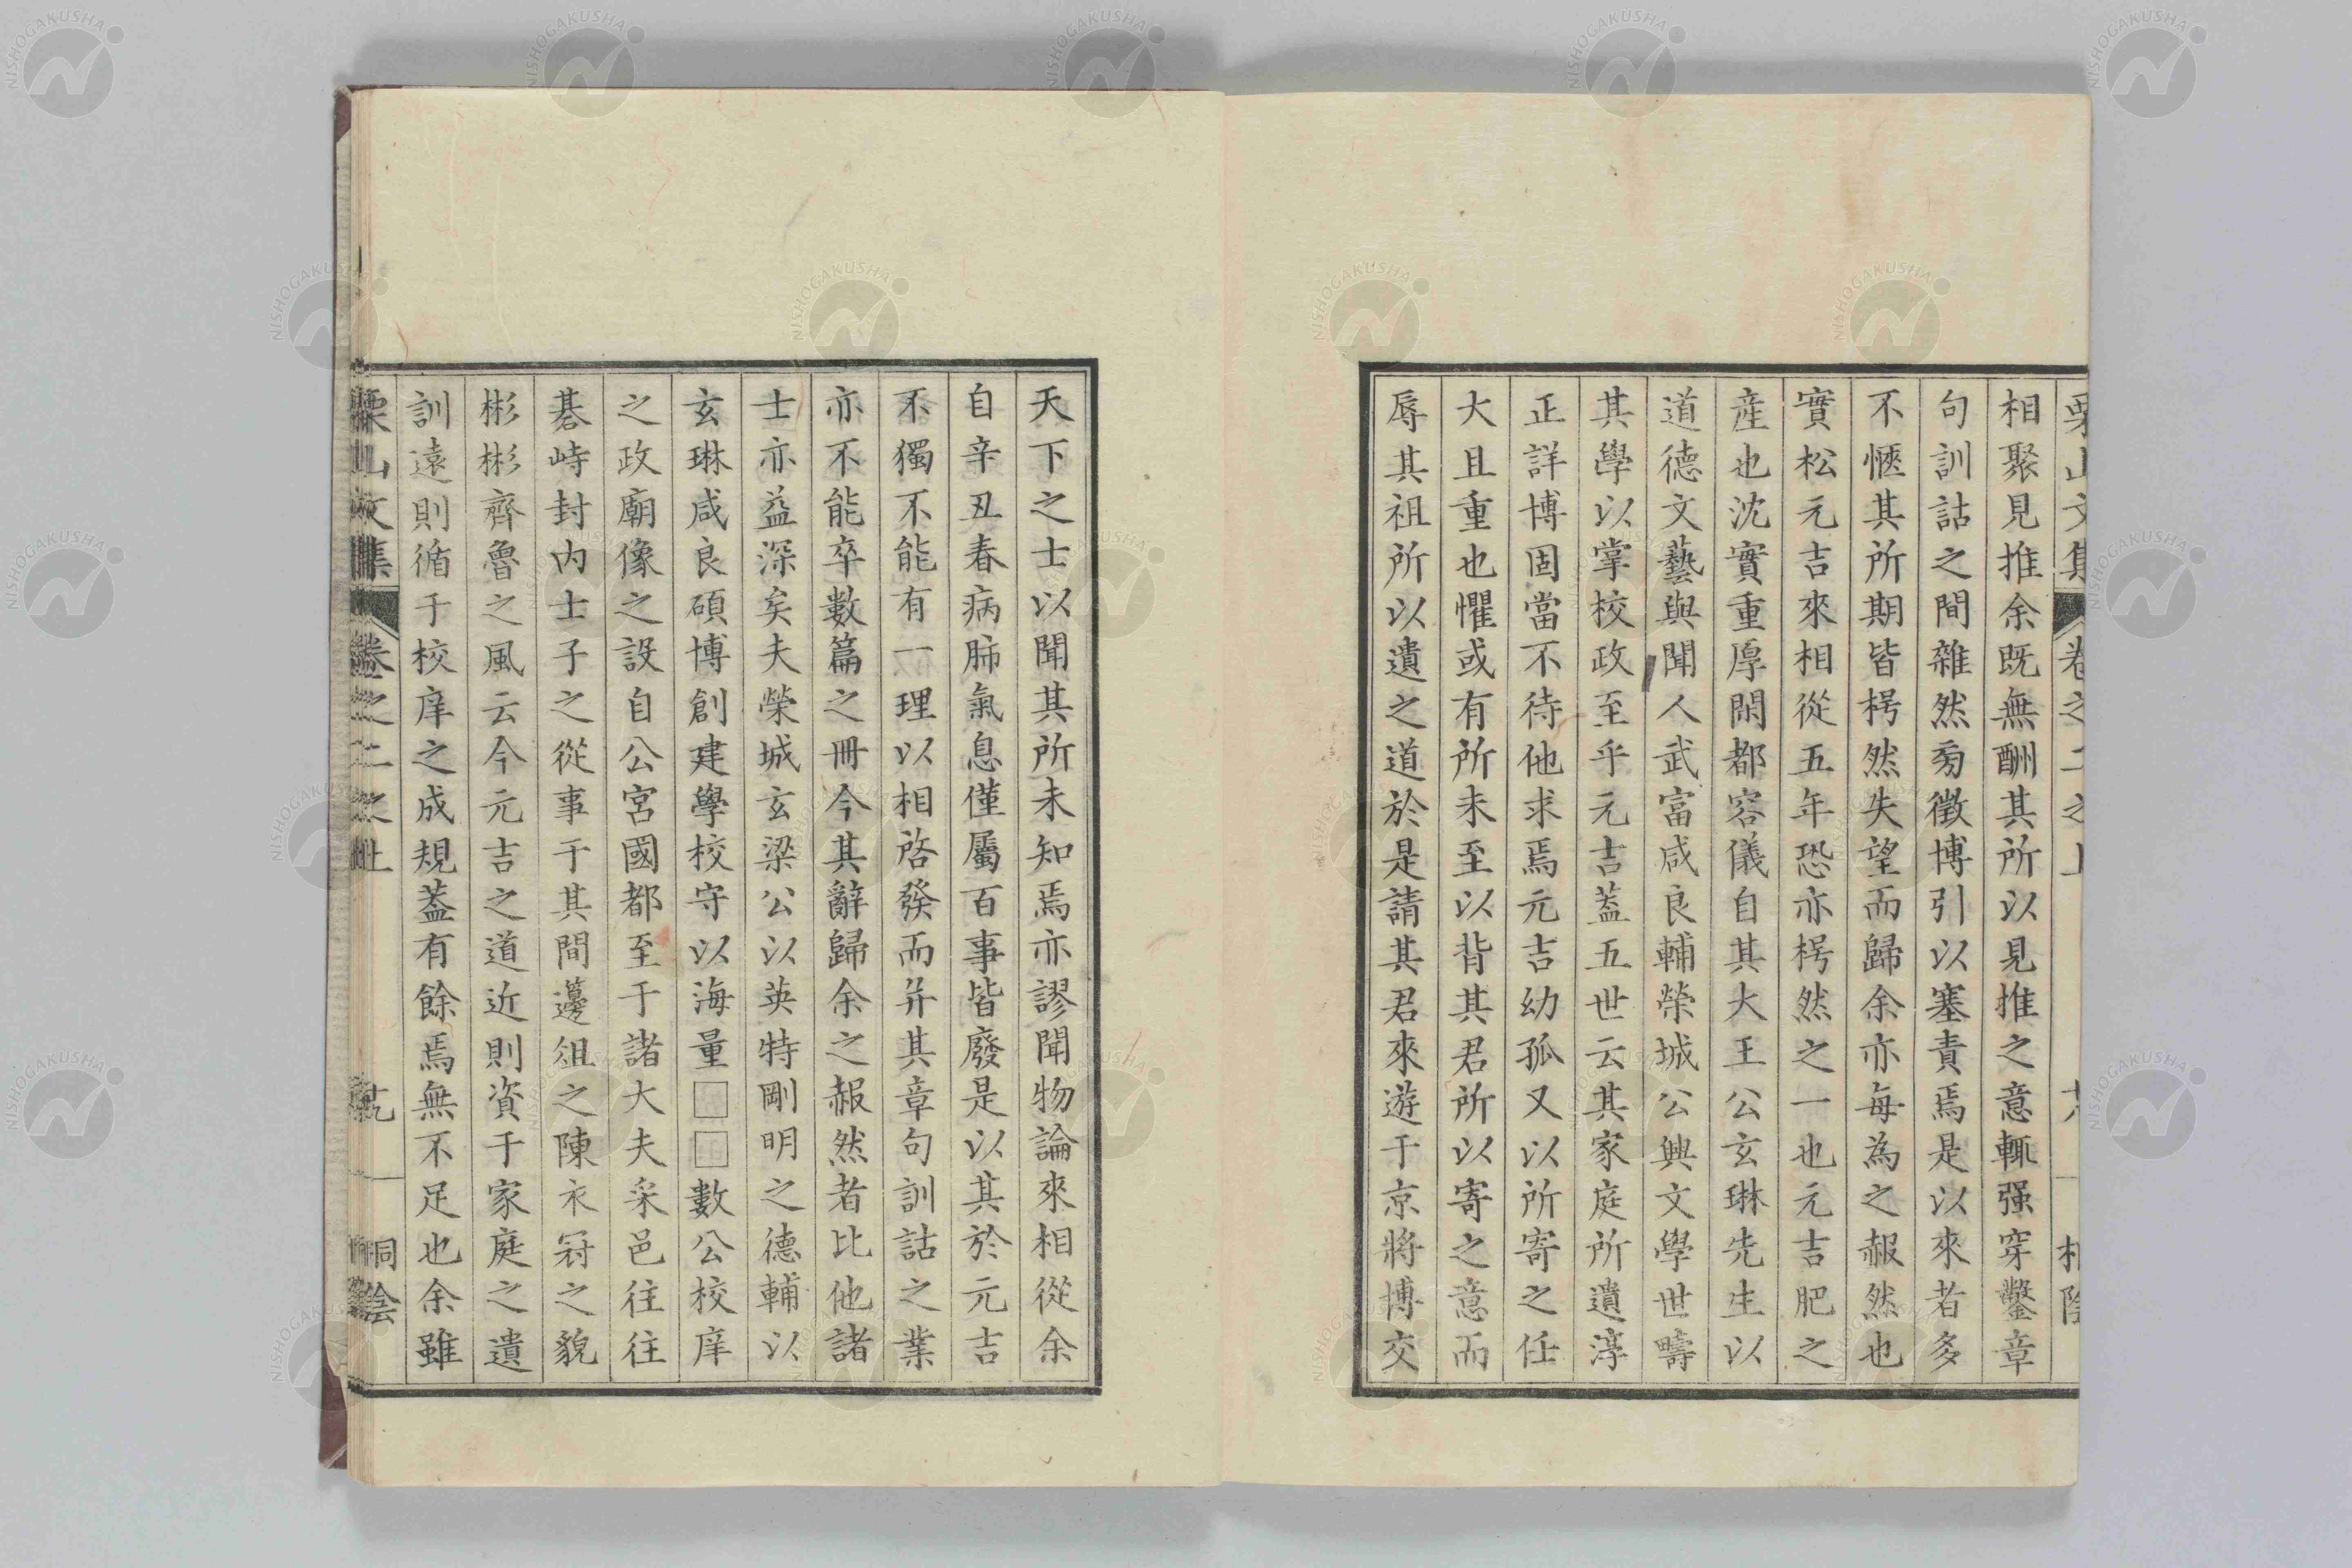 相聚見推余既無酬其所以見推之意輒强穿鑿章
句訓詁之間雜然旁徵博引以塞責焉是以來者多
不愜其所期皆枵然失望而歸余亦每為之赧然也
實松元吉來相從五年恐亦枵然之一也元吉肥之
産也沈實重厚閑都容儀自其大王公玄琳先生以
道德文藝與聞人武富咸良輔榮城公興文學世疇
其學以掌校政至乎元吉蓋五世云其家庭所遺淳
正詳博固當不待他求焉元吉幼孤又以所寄之任
大且重也懼或有所未至以背其君所以寄之意而
辱其祖所以遺之道於是請其君來遊于京將博交
天下之士以聞其所未知焉亦謬聞物論來相從余
自辛丑春病肺氣息僅屬百事皆廢是以其於元吉
不獨不能有一理以相啓發而并其章句訓詁之業
亦不能卒數篇之冊今其辭歸余之赧然者比他諸
士亦益深矣夫榮城玄梁公以英特剛明之德輔以
玄琳咸良碩博創建學校守以海量□□數公校庠
之政廟像之設自公宮國都至于諸大夫采邑往往
碁峙封内士子之從事于其間籩俎之陳衣冠之貌
彬彬齊魯之風云今元吉之道近則資于家庭之遺
訓遠則循于校庠之成規蓋有餘焉無不足也余雖
栗山文集 卷之二之上 桐陰